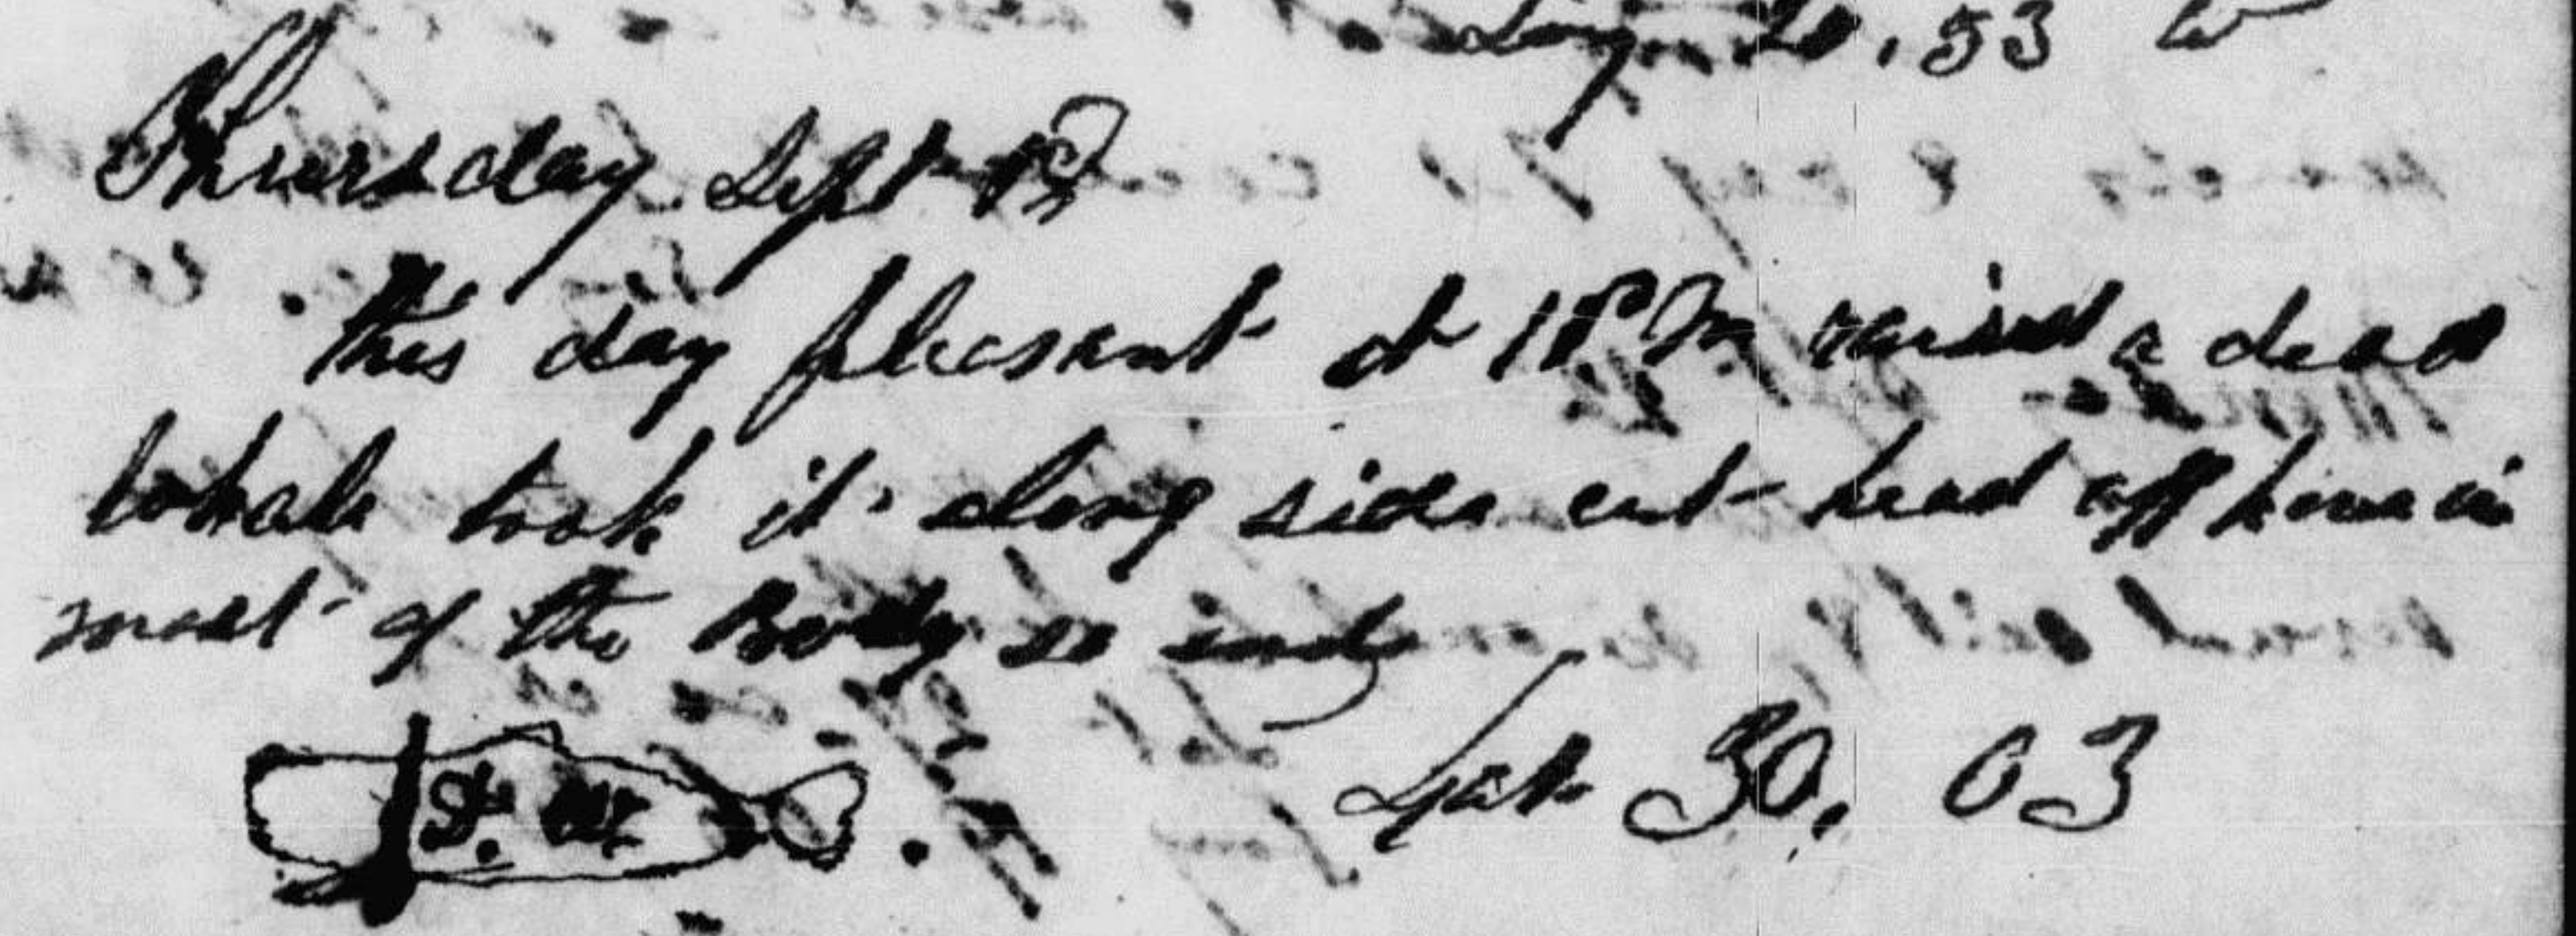 Long 20.53 W
Thursday Sept 12
this day pleasant at 1 P M raised a dead
whale took it along side cut head off hove in
most of the Body so ends
Lat 30, 03
St.